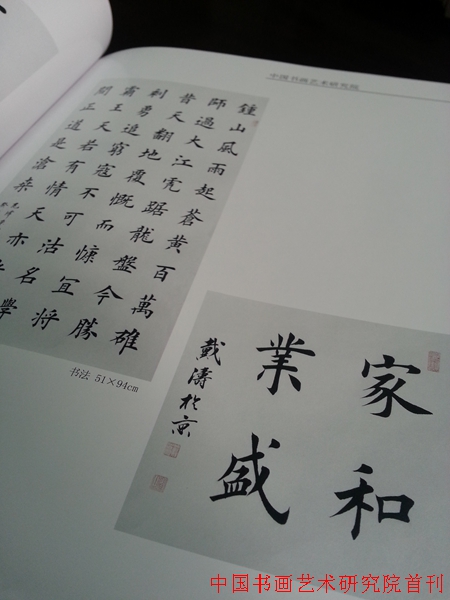 中国书画艺术研究院
鍾山風雨起蒼黃百萬雄
師過大江虎踞龍盤今勝
昔天翻地覆慨而慷宜將
剩勇追窮寇不可沽名學
霸王天若有情天亦
間正道是滄桑
书法 51×94cm
家和
業盛
戴濤於京
中国书画艺术研究院首刊